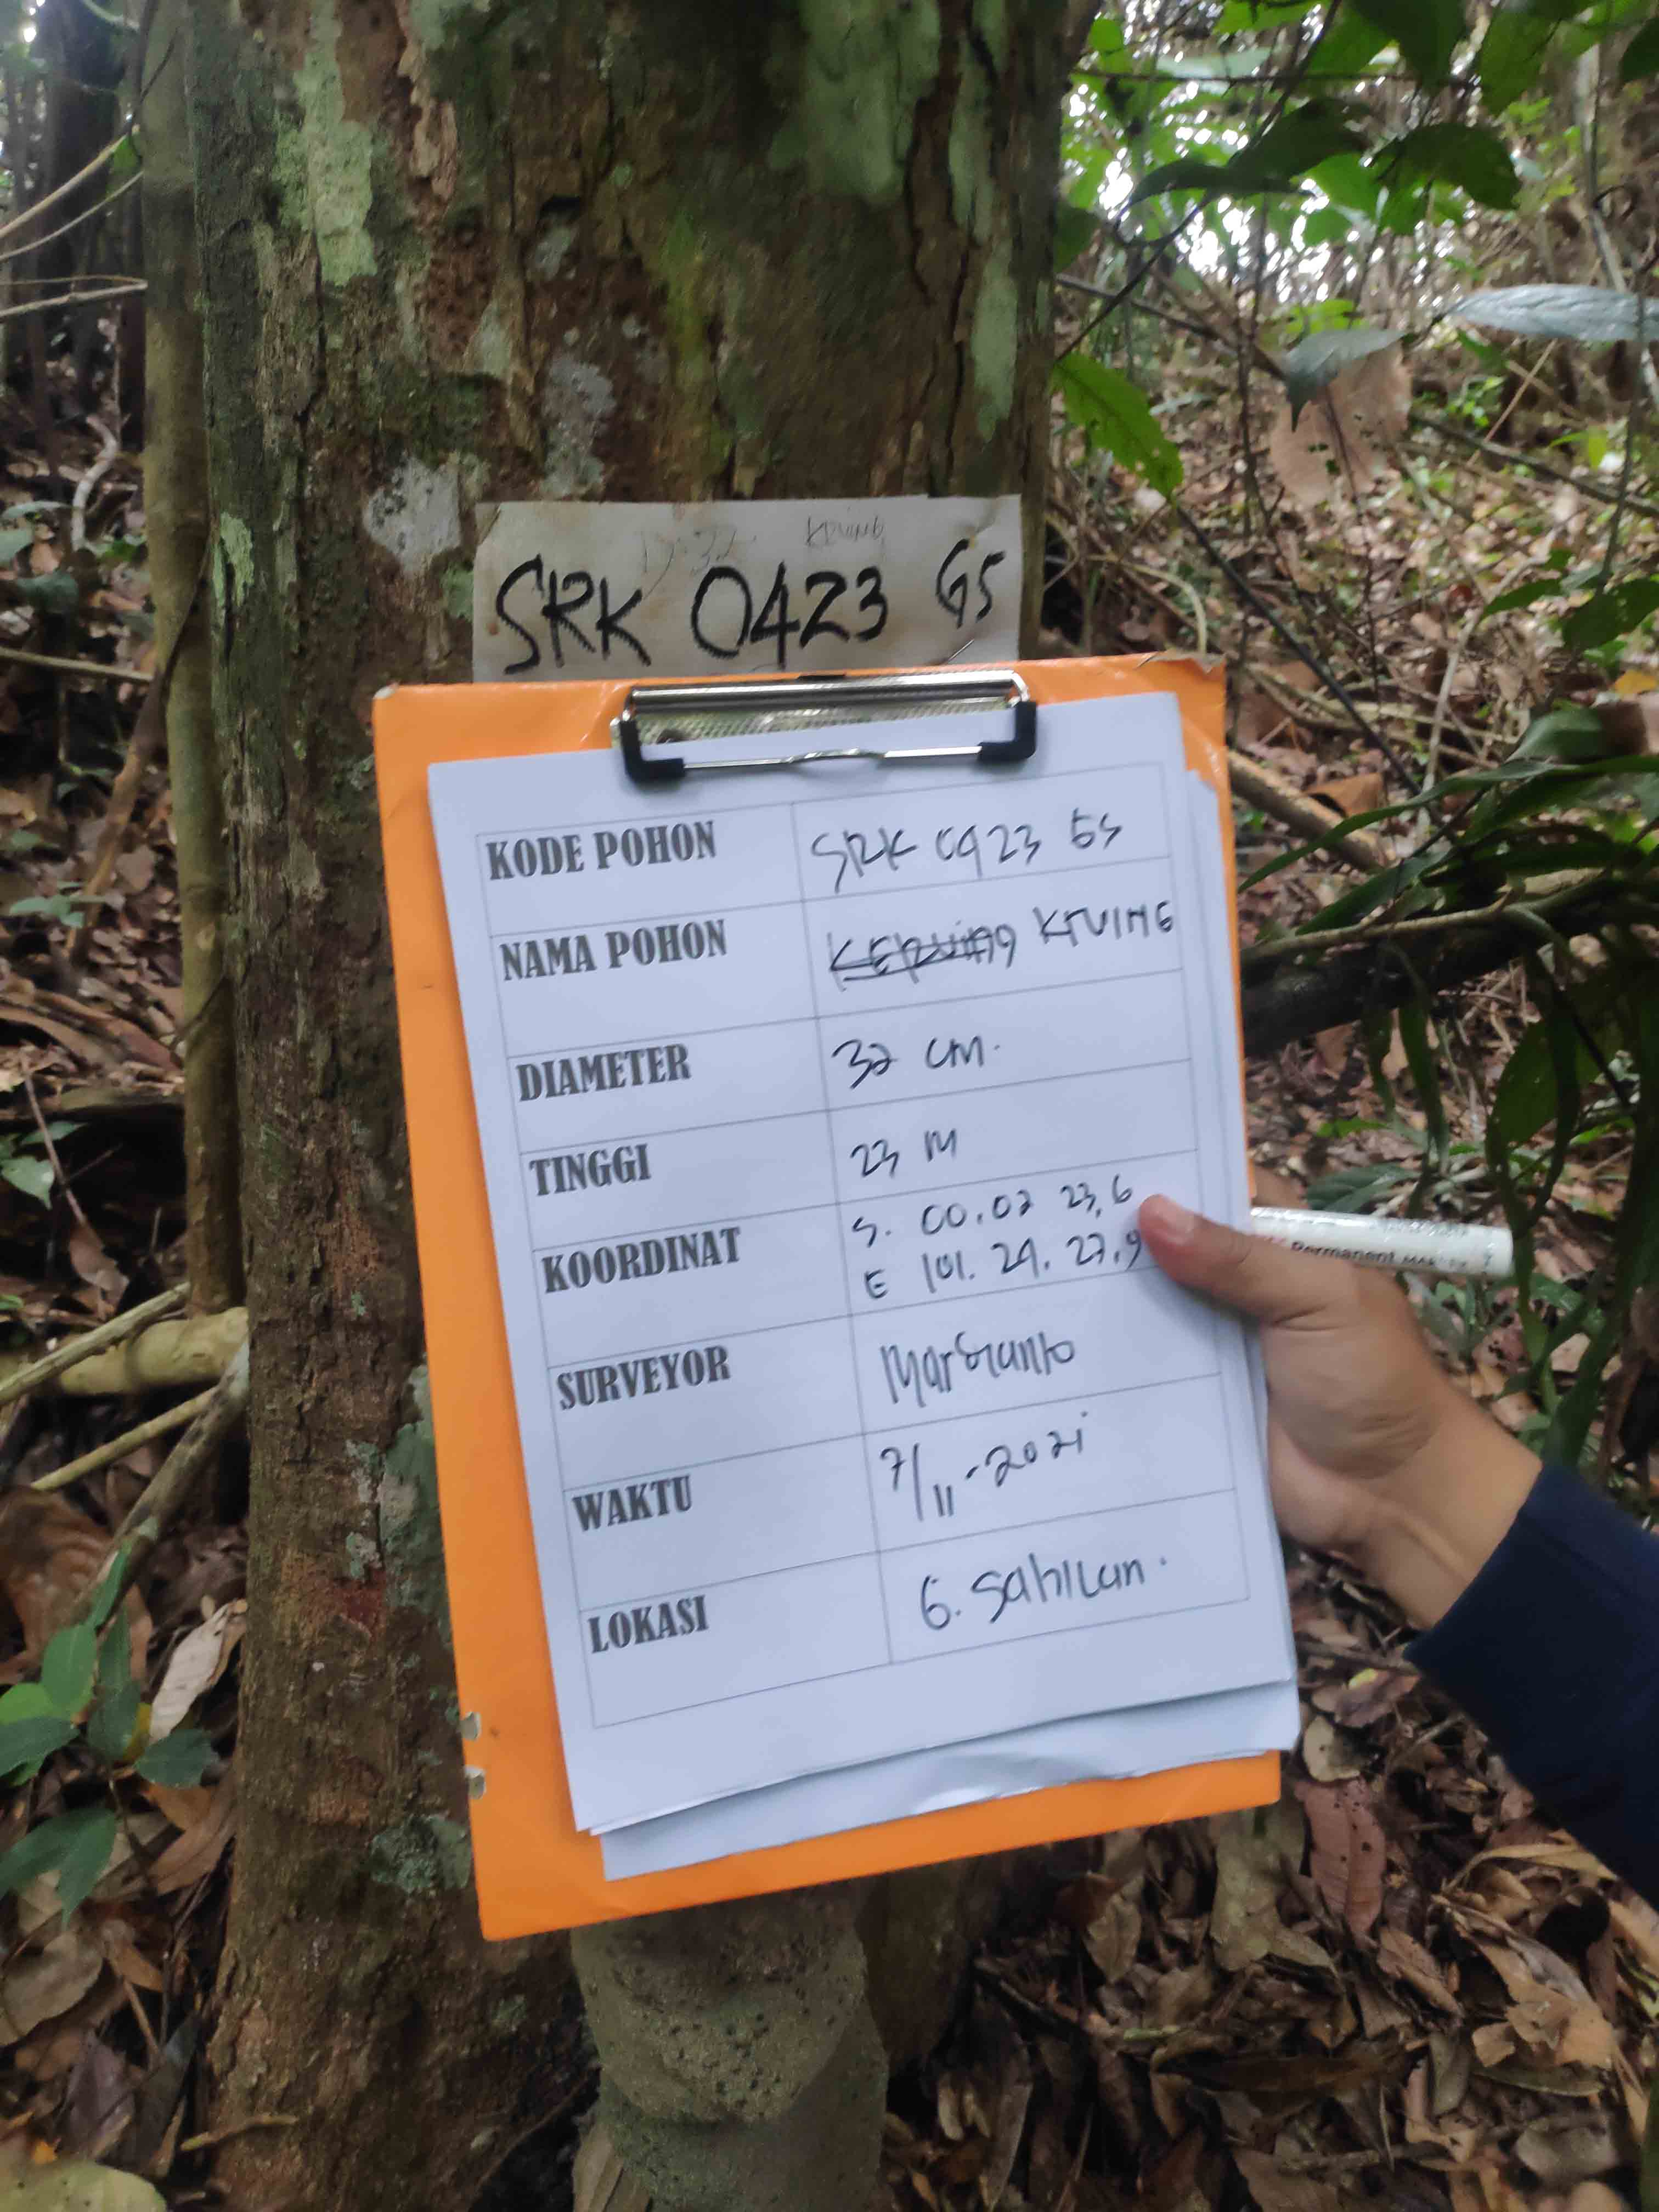 D: 32 KRUING
SRK 0423 GS
KODE POHON SRK 0423 GS
NAMA POHON KRUING
DIAMETER 32 CM.
TINGGI 23 M
KOORDINAT S. 00.02 23,6
E 101. 21. 27,9
SURVEYOR Marsianto
WAKTU 7/11-2021
LOKASI G. Sahilan.
Permanent MARKER